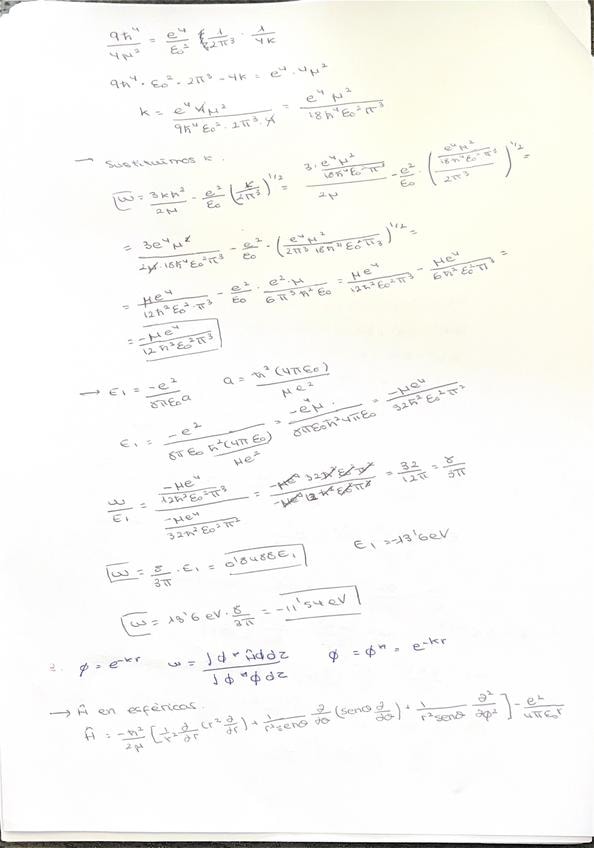 9ħ⁴/4μ² = e⁴/ε₀² · 1/2π³ · 1/4k
9ħ⁴ · ε₀² · 2π³ · 4k = e⁴ · 4μ²
k = e⁴ 4μ²/9ħ⁴ε₀² · 2π³ · 4 = e⁴μ²/18ħ⁴ε₀²π³
→ Sustituimos k.
w = 3kħ²/2μ - e²/ε₀ (k/2π³)^1/2 = (3 · e⁴μ²/18ħ⁴ε₀²π³)/2μ - e²/ε₀ · ((e⁴μ²/18ħ⁴ε₀²π³)/2π³)^1/2 =
= 3e⁴μ²/2μ · 18ħ⁴ε₀²π³ - e²/ε₀ · (e⁴μ²/2π³ 18ħ⁴ε₀²π³)^1/2 =
= μe⁴/12ħ²ε₀² · π³ - e²/ε₀ · e² · μ/6π³ħ²ε₀ = μe⁴/12ħ²ε₀²π³ - μe⁴/6ħ²ε₀²π³ =
= -μe⁴/12ħ²ε₀²π³
→ ε₁ = -e²/8πε₀a a = ħ²(4πε₀)/μe²
ε₁ = -e²/(8πε₀ ħ²(4πε₀)/μe²) = -e⁴μ/8πε₀ħ²4πε₀ = -μe⁴/32ħ²ε₀²π²
w/ε₁ = (-μe⁴/12ħ²ε₀²π³)/(-μe⁴/32ħ²ε₀²π²) = -μe⁴ 32ħ²ε₀²π²/-μe⁴ 12ħ²ε₀²π³ = 32/12π = 8/3π
w = 8/3π · ε₁ = 0'8488ε₁ ε₁ = -13'6eV
w = 13'6 eV · 8/3π = -11'54 eV
2. φ = e^-kr w = ∫φ*Ĥφdz/∫φ*φdz φ = φ* = e^-kr
→ Ĥ en esféricas.
Ĥ = -ħ²/2μ [1/r² ∂/∂r (r² ∂/∂r) + 1/r²senθ ∂/∂θ (senθ ∂/∂θ) + 1/r²senθ ∂²/∂φ²] - e²/4πε₀r